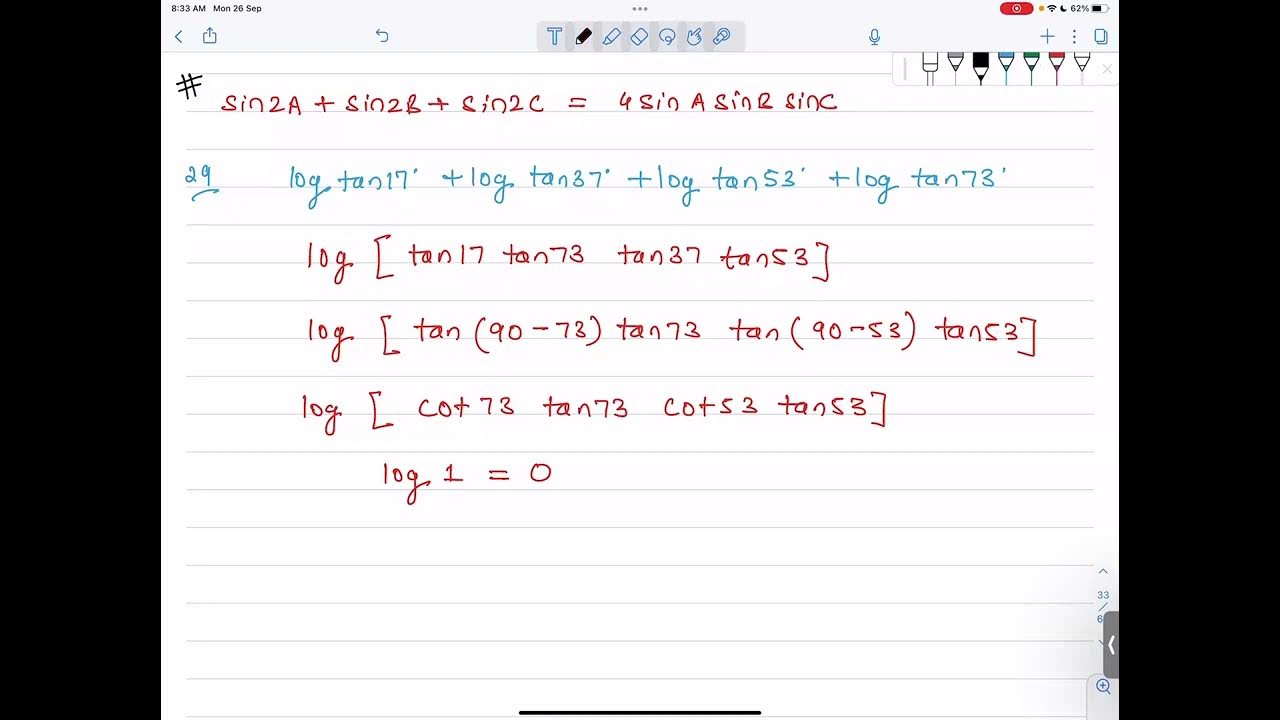 8:33 AM Mon 26 Sep
62%
T
#
sin2A + sin2B + sin2C = 4 sin A sin B sin C
29 log tan17° + log tan37° + log tan53° + log tan73°
log [ tan17 tan73 tan37 tan53 ]
log [ tan (90-73) tan73 tan (90-53) tan53 ]
log [ cot 73 tan73 cot 53 tan53 ]
log 1 = 0
33